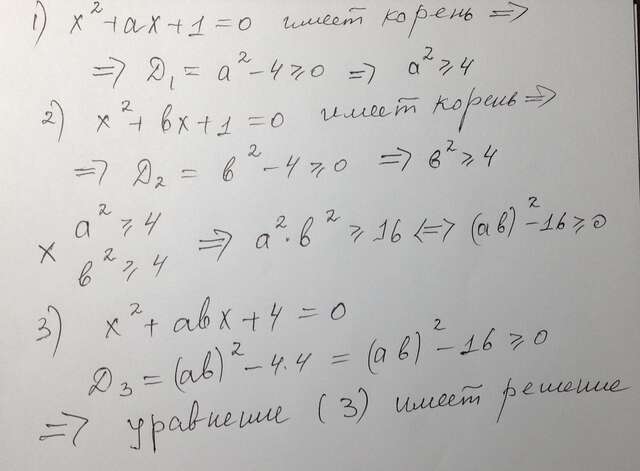 1) x²+ax+1=0 имеет корень ⇒
⇒ D₁ = a²-4⩾0 ⇒ a²⩾4
2) x²+bx+1=0 имеет корень ⇒
⇒ D₂ = b²-4⩾0 ⇒ b²⩾4
× a²⩾4
b²⩾4 ⇒ a²·b²⩾16 ⇔ (ab)²-16⩾0
3) x²+abx+4=0
D₃=(ab)²-4·4=(ab)²-16⩾0
⇒ уравнение (3) имеет решение